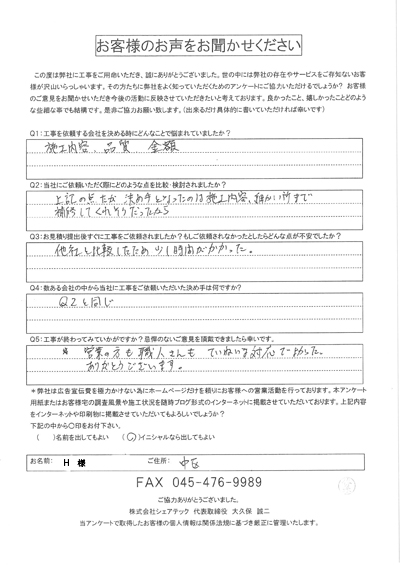 お客様のお声をお聞かせください
この度は弊社に工事をご用命いただき、誠にありがとうございました。世の中には弊社の存在やサービスをご存知ないお客
様が沢山いらっしゃいます。その方たちに弊社をよく知っていただくためのアンケートにご協力いただけるでしょうか? お客様
のご意見をお聞かせいただき今後の活動に反映させていただきたいと考えております。良かったこと、嬉しかったことどのよう
な些細な事でも結構です。是非ご協力お願い致します。(出来るだけ具体的に書いていただければ幸いです)
Q1:工事を依頼する会社を決める時にどんなことで悩まれていましたか?
施工内容、品質 金額
Q2:当社にご依頼いただく際にどのような点を比較・検討されましたか?
上記の点だが 決め手となったのは施工内容、細かい所まで
補修してくれそうだったから
Q3:お見積り提出後すぐに工事をご依頼されましたか?もしご依頼されなかったとしたらどんな点が不安でしたか?
他社と比較したため少し時間がかかった。
Q4:数ある会社の中から当社に工事をご依頼いただいた決め手は何ですか?
Q2と同じ
Q5:工事が終わってみていかがですか?忌憚のないご意見を頂戴できましたら幸いです。
営業の方も職人さんも ていねいな対応でよかった。
ありがとうございます。
*弊社は広告宣伝費を極力かけない為にホームページだけを頼りにお客様への営業活動を行っております。本アンケート
用紙またはお客様宅の調査風景や施工状況を随時ブログ形式のインターネットに掲載させていただいております。上記内容
をインターネットや印刷物に掲載させていただいてもよろしいでしょうか?
下記の中から〇印をお付下さい。
( )名前を出してもよい (〇)イニシャルなら出してもよい
お名前: H 様 ご住所: 中区
FAX 045-476-9989
ご協力ありがとうございました。
株式会社シェアテック 代表取締役 大久保 誠二
当アンケートで取得したお客様の個人情報は関係法規に基づき厳正に管理いたします。